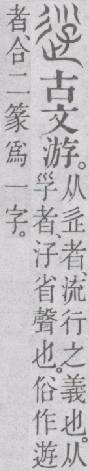 古文游。
从辵者、流行之義也。从
者、汓省聲也。俗作遊
者合二篆爲一字。